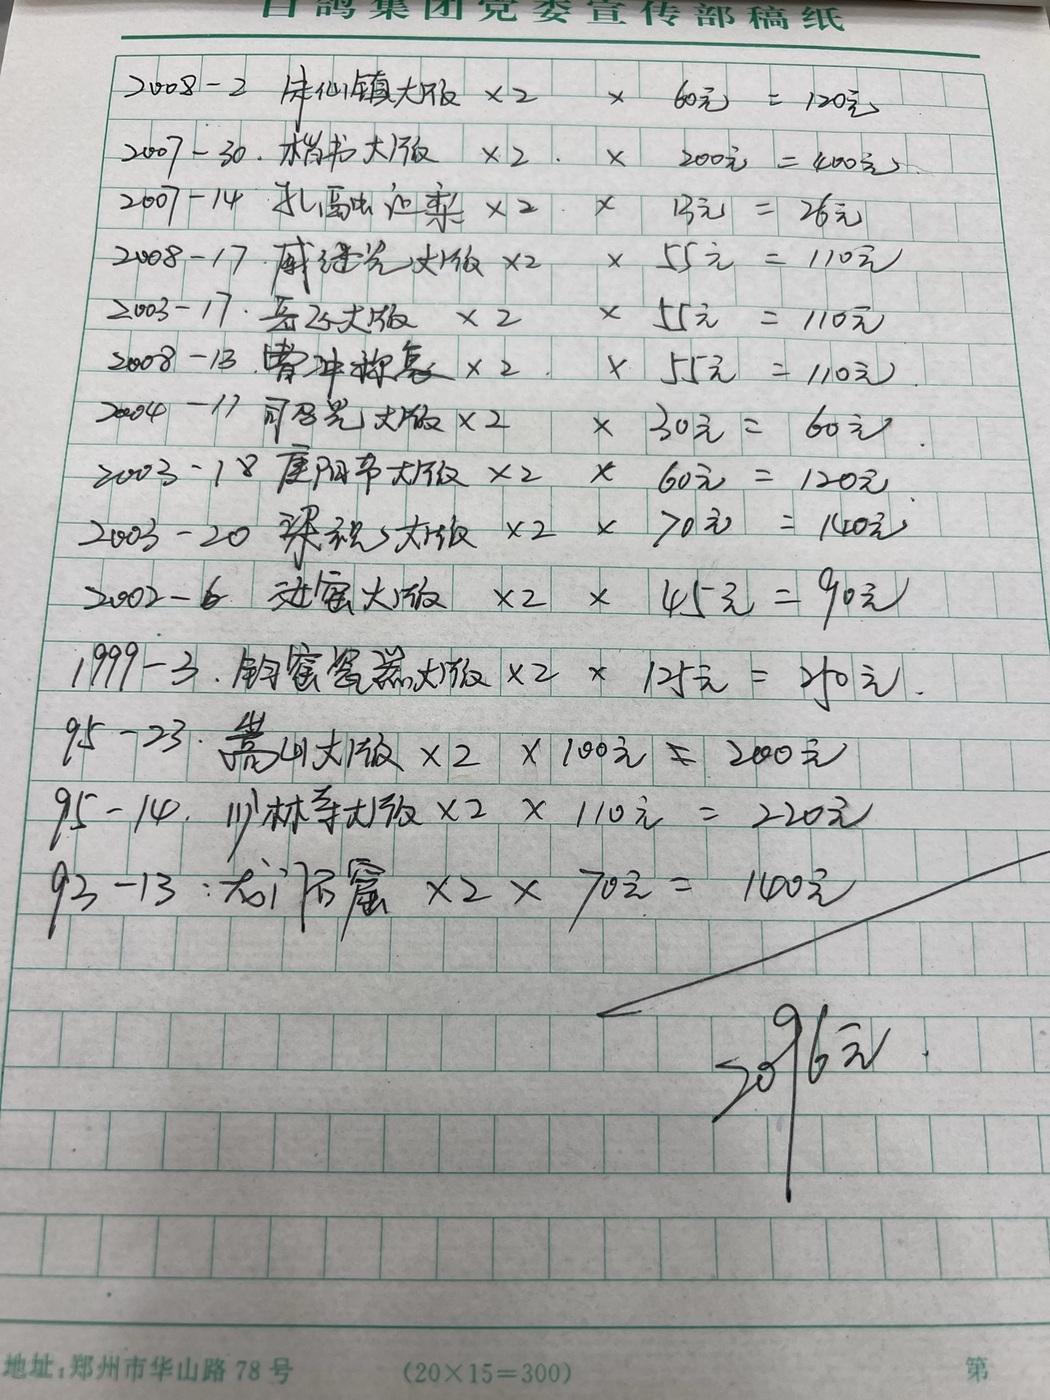 白鸽集团党委宣传部稿纸
2008-2 朱仙镇大版 ×2 × 60元 = 120元
2007-30. 楷书大版 ×2. × 200元 = 400元
2007-14 孔融让梨 ×2. × 13元 = 26元
2008-17 戚继光大版 ×2 × 55元 = 110元
2003-17. 岳飞大版 ×2 × 55元 = 110元
2008-13. 曹冲称象 ×2. × 55元 = 110元
2004-11 司马光大版 ×2 × 30元 = 60元.
2003-18 重阳节大版 ×2 × 60元 = 120元
2003-20 梁祝大版 ×2 × 70元 = 140元
2002-6 汝窑大版 ×2 × 45元 = 90元
1999-3. 钧窑瓷器大版 ×2 × 125元 = 250元.
95-23. 嵩山大版 ×2 × 100元 = 200元
95-14. 少林寺大版 ×2 × 110元 = 220元
93-13: 龙门石窟 ×2 × 70元 = 140元
2096元.
地址:郑州市华山路78号 (20×15=300) 第